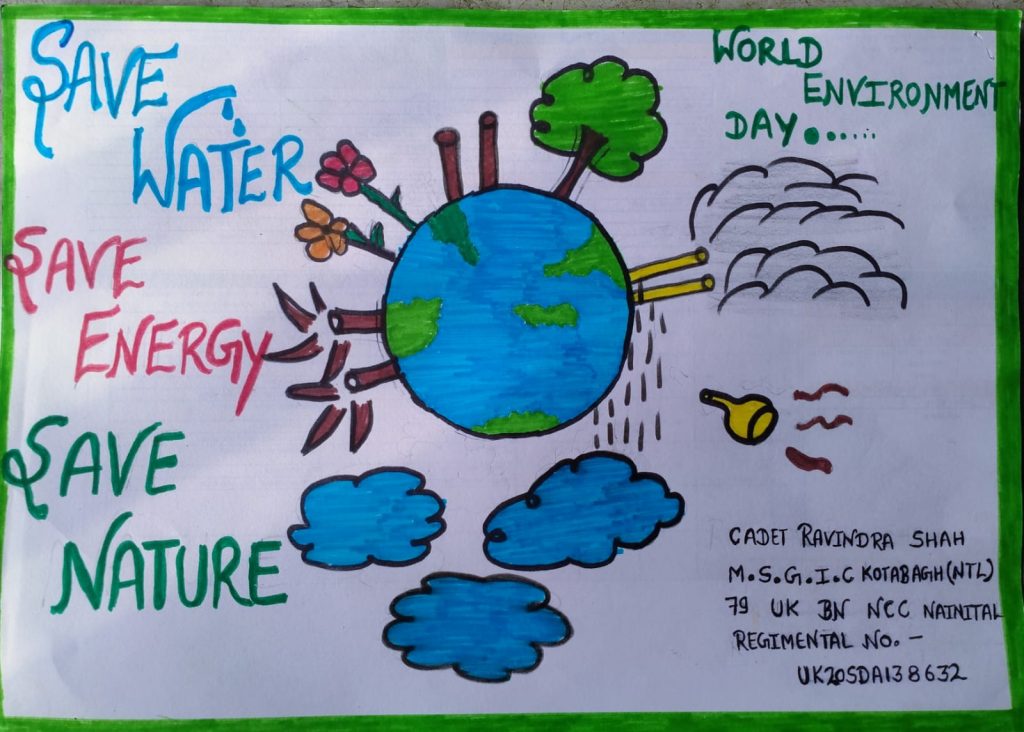 SAVE
WATER
SAVE
ENERGY
SAVE
NATURE
WORLD
ENVIRONMENT
DAY.......
CADET RAVINDRA SHAH
M.S.G.I.C KOTABAGH(NTL)
79 UK BN NCC NAINITAL
REGIMENTAL NO. -
UK20SDA138632